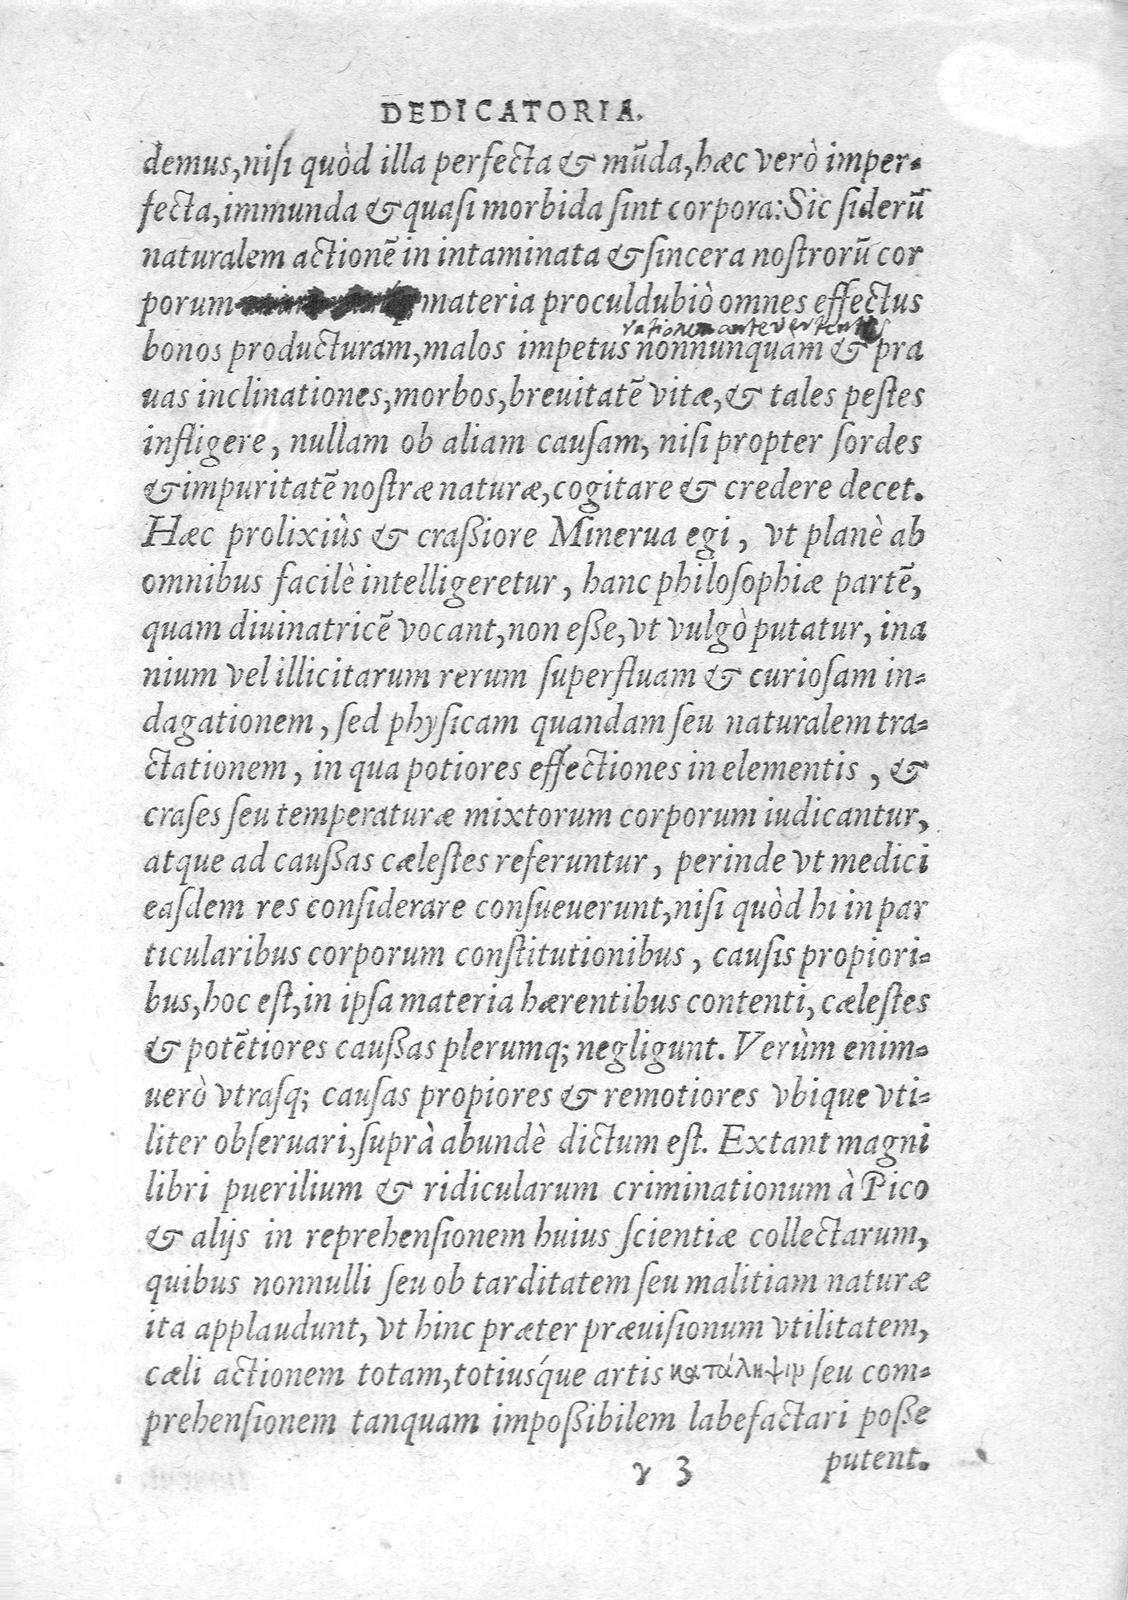 DEDICATORIA.
demus,niſi quòd illa perfecta & mūda,hæc verò imper-
fecta,immunda & quaſi morbida ſint corpora:Sic ſiderū
naturalem actionē in intaminata & ſincera noſtrorū cor
porum materia proculdubiò omnes effectus
rationem antevertentes
bonos producturam,malos impetus nonnunquam & pra
uas inclinationes,morbos,breuitatē vitæ,& tales peſtes
infligere, nullam ob aliam cauſam, niſi propter ſordes
& impuritatē noſtræ naturæ,cogitare & credere decet.
Hæc prolixiùs & craßiore Minerua egi, vt planè ab
omnibus facilè intelligeretur, hanc philoſophiæ partē,
quam diuinatricē vocant,non eße,vt vulgò putatur, ina
nium vel illicitarum rerum ſuperfluam & curioſam in-
dagationem, ſed phyſicam quandam ſeu naturalem tra-
ctationem, in qua potiores effectiones in elementis, &
craſes ſeu temperaturæ mixtorum corporum iudicantur,
atque ad caußas cæleſtes referuntur, perinde vt medici
eaſdem res conſiderare conſueuerunt,niſi quòd hi in par
ticularibus corporum conſtitutionibus, cauſis propiori-
bus,hoc eſt,in ipſa materia hærentibus contenti, cæleſtes
& potētiores caußas plerumq; negligunt. Verùm enim-
uerò vtraſq; cauſas propiores & remotiores vbique vti-
liter obſeruari,ſuprà abundè dictum eſt. Extant magni
libri puerilium & ridicularum criminationum à Pico
& alijs in reprehenſionem huius ſcientiæ collectarum,
quibus nonnulli ſeu ob tarditatem ſeu malitiam naturæ
ita applaudunt, vt hinc præter præuiſionum vtilitatem,
cæli actionem totam,totiusq́ue artis κατάληψιν ſeu com-
prehenſionem tanquam impoßibilem labefactari poße
γ 3 putent.